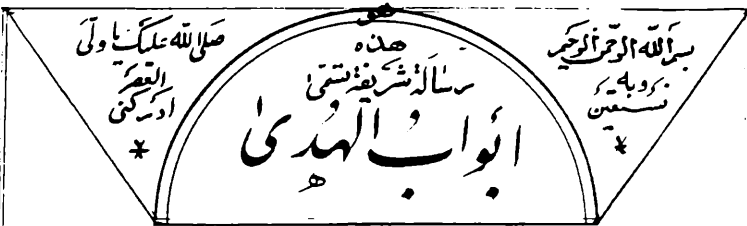 هو
بسم الله الرحمن الرحیم
وبه
نستعین
*
هذه
رسالة شریفة تسمّی
ابواب الهُدیٰ
ه
صلی الله علیک یا ولیّ
العصر
ادرکنی
*